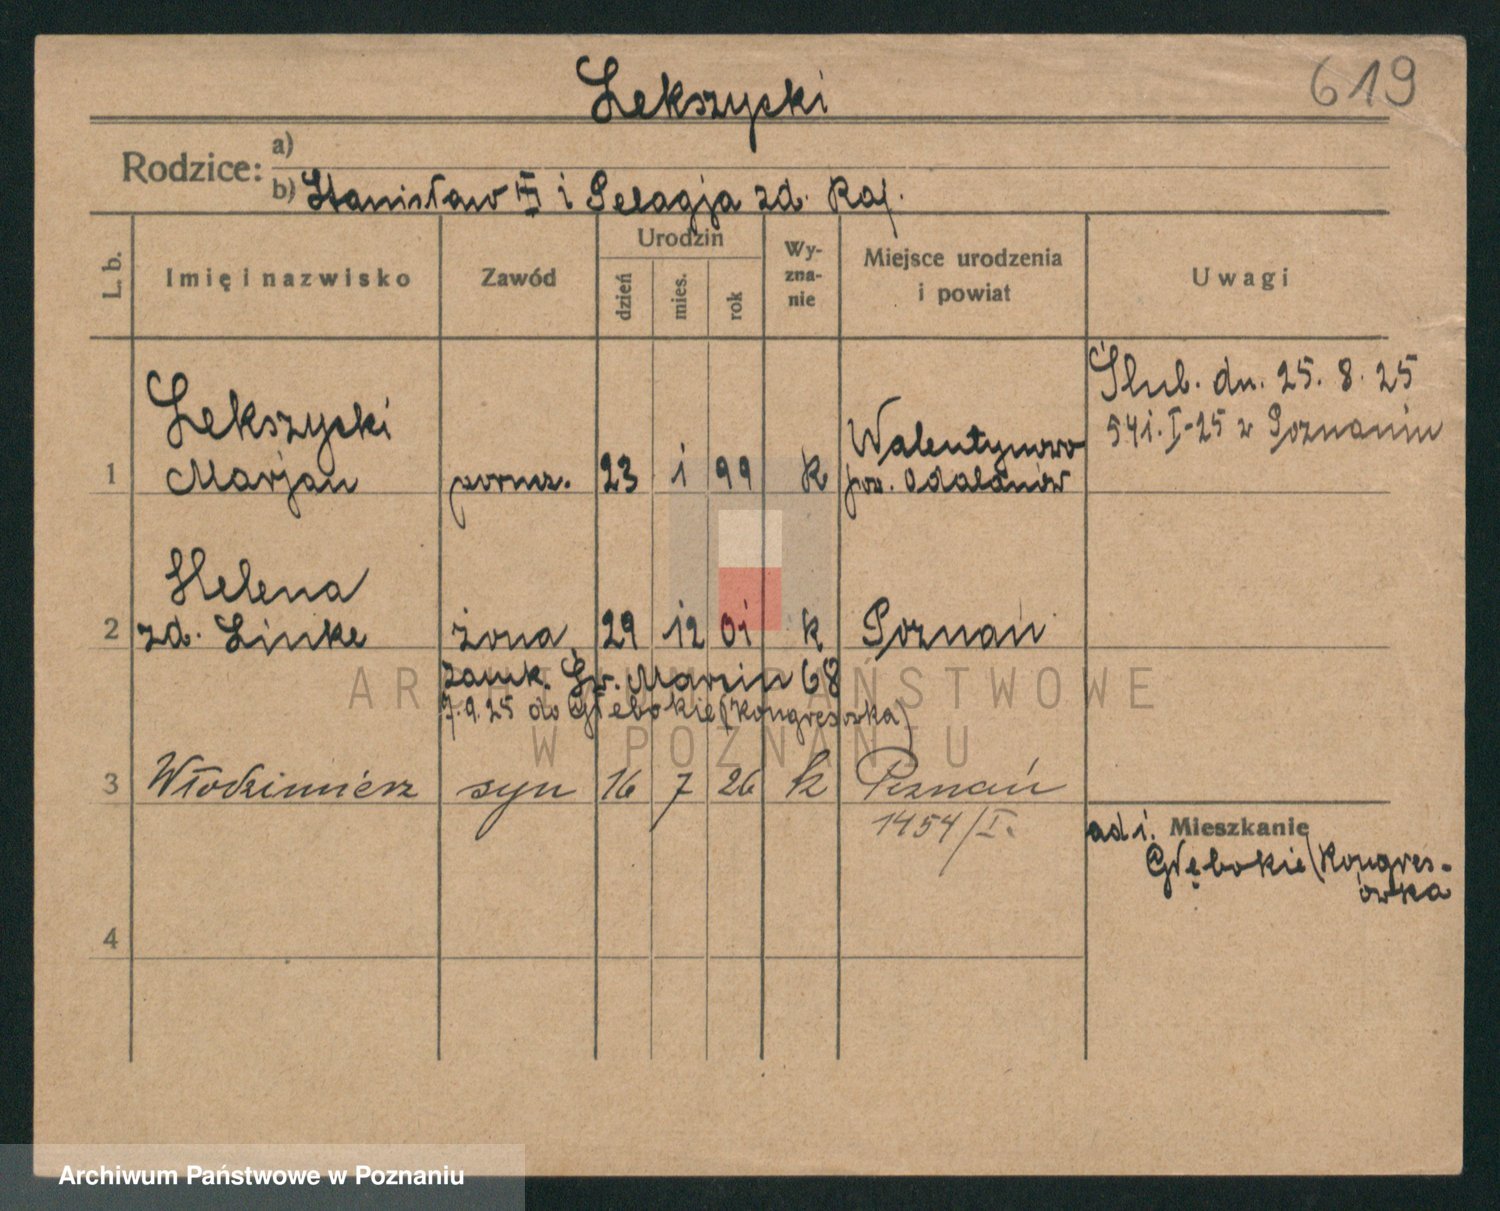 619
Lekszycki
Rodzice:
a)
b) Stanisław III i Pelagja zd. Raj.
L. b.
Imię i nazwisko
Zawód
Urodzin
dzień
mies.
rok
Wy-
zna-
nie
Miejsce urodzenia
i powiat
Uwagi
Ślub. dn. 25. 8. 25
541. I-25 w Poznaniu
Lekszycki
1 Marjan 23 1 99 k
Walentynowo
pow. Odolanów
Helena
2 zd. Linke żona 29 12 01 k Poznań
zamk. Św. Marcin 68
7.9.25 do Głębokie (Kongresówka)
3 Włodzimierz syn 16 7 26 k Poznań
1454/I.
ad 1. Mieszkanie
Głębokie (Kongres-
ówka
4
ARCHIWUM PAŃSTWOWE
W POZNANIU
Archiwum Państwowe w Poznaniu